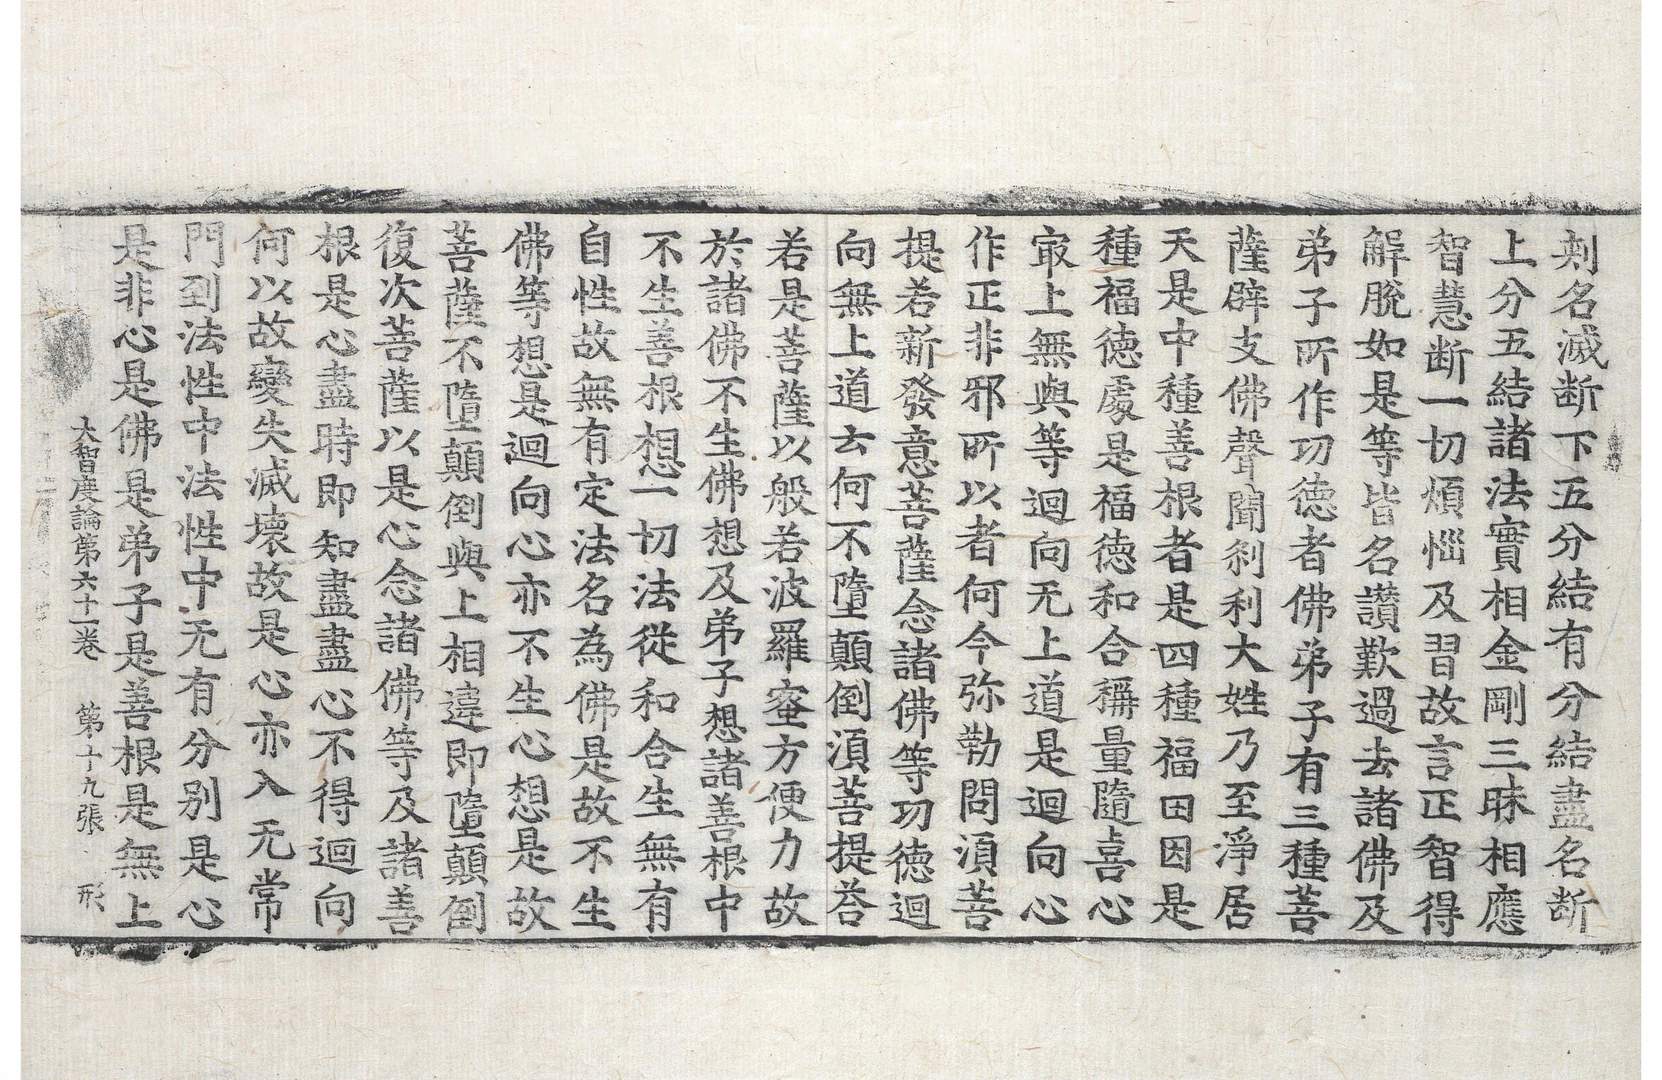 刾名滅断下五分結有分結盡名断
上分五結諸法實相金剛三昧相應
智慧断一切煩惱及習故言正智得
解脫如是等皆名讚歎過去諸佛及
弟子所作功德者佛弟子有三種菩
薩辟支佛聲聞剎利大姓乃至淨居
天是中種善根者是四種福田因是
種福德處是福德和合稱量隨喜心
㝡上無與等迴向无上道是迴向心
作正非邪所以者何今弥勒問湏菩
提若新發意菩薩念諸佛等功德迴
向無上道云何不墮顛倒湏菩提荅
若是菩薩以般若波羅蜜方便力故
於諸佛不生佛想及弟子想諸善根中
不生善根想一切法從和合生無有
自性故無有定法名為佛是故不生
佛等想是迴向心亦不生心想是故
菩薩不墮顛倒與上相違即墮顛倒
復次菩薩以是心念諸佛等及諸善
根是心盡時即知盡盡心不得迴向
何以故變失滅壞故是心亦入无常
門到法性中法性中无有分別是心
是非心是佛是弟子是善根是無上
大智度論第六十一卷 第十九張 形